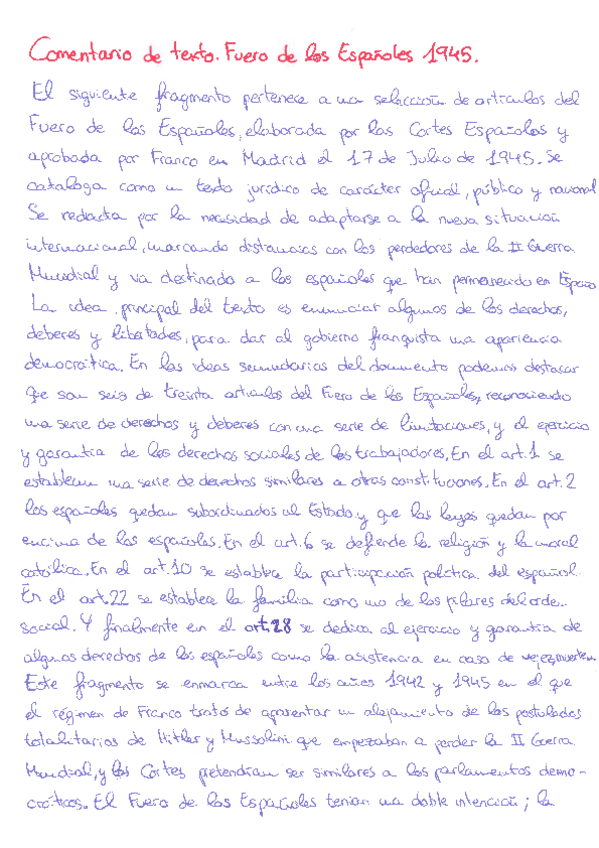 Comentario de texto. Fuero de los Españoles 1945.
El siguiente fragmento pertenece a una selección de articulos del
Fuero de los Españoles, elaborada por las Cortes Españolas y
aprobada por Franco en Madrid el 17 de Julio de 1945. Se
cataloga como un texto jurídico de carácter oficial, público y nacional
Se redacta por la necesidad de adaptarse a la nueva situación
internacional, marcando distancias con los perdedores de la II Guerra
Mundial y va destinado a los españoles que han permanecido en España
La idea principal del texto es enunciar algunos de los derechos,
deberes y libertades, para dar al gobierno franquista una apariencia
democrática. En las ideas secundarias del documento podemos destacar
que son seis de treinta articulos del Fuero de los Españoles, reconociendo
una serie de derechos y deberes con una serie de limitaciones, y el ejercicio
y garantía de los derechos sociales de los trabajadores. En el art. 1 se
establecen una serie de derechos similares a otras constituciones. En el art. 2
los españoles quedan subordinados al Estado y que las leyes quedan por
encima de los españoles. En el art. 6 se defiende la religión y la moral
católica. En el art. 10 se establece la participación política del español.
En el art. 22 se establece la familia como uno de los pilares del orden
social. Y finalmente en el art. 28 se dedica al ejercicio y garantía de
algunos derechos de los españoles como la asistencia en caso de vejez, muerte...
Este fragmento se enmarca entre los años 1942 y 1945 en el que
el régimen de Franco trató de aparentar un alejamiento de los postulados
totalitarios de Hitler y Mussolini que empezaban a perder la II Guerra
Mundial, y las Cortes pretendían ser similares a los parlamentos demo-
cráticos. El Fuero de los Españoles tenían una doble intención; la